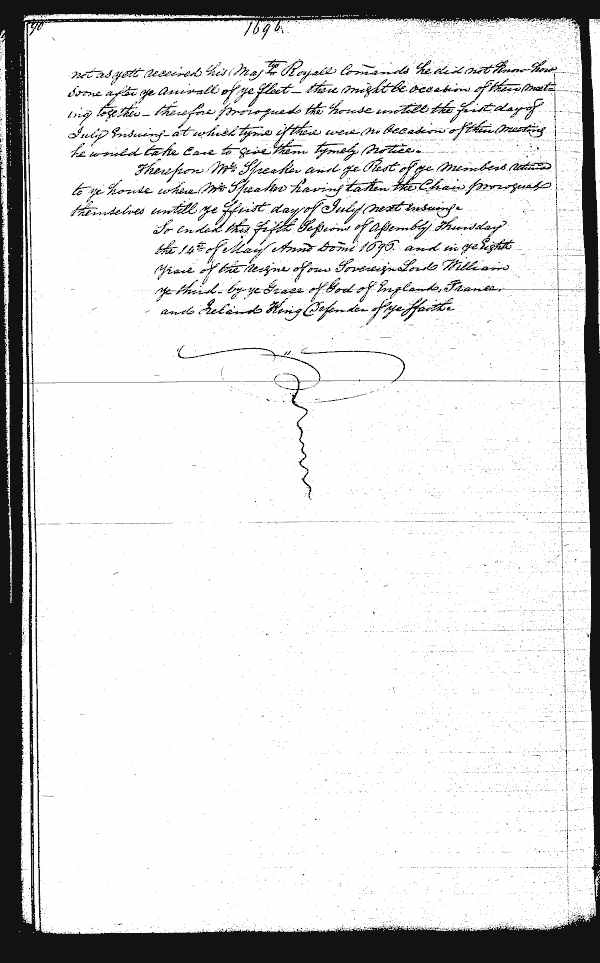 90
1696.
not as yett received his Maj.tys Royall Comands he did not know how
soone after ye arrivall of ye fleet - there might be occasion of their meet-
ing together - therefore prorogued the house untill the first day of
July Ensuing at which tyme if there were no occasion of their meeting
he would take Care to give them tymely Notice.
Thereupon Mr. Speaker and ye Rest of ye members returned
to ye house where Mr. Speaker having taken the Chair prorogued
themselves untill ye ffirst day of July next ensuing.
So ended this fifth Sessions of Assembly Thursday
the 14th of May Anno Domi 1696. and in ye Eighth
Yeare of the reigne of our Sovereign Lord William
ye third by ye Grace of God of England, France,
and Ireland King Defender of ye ffaith &c